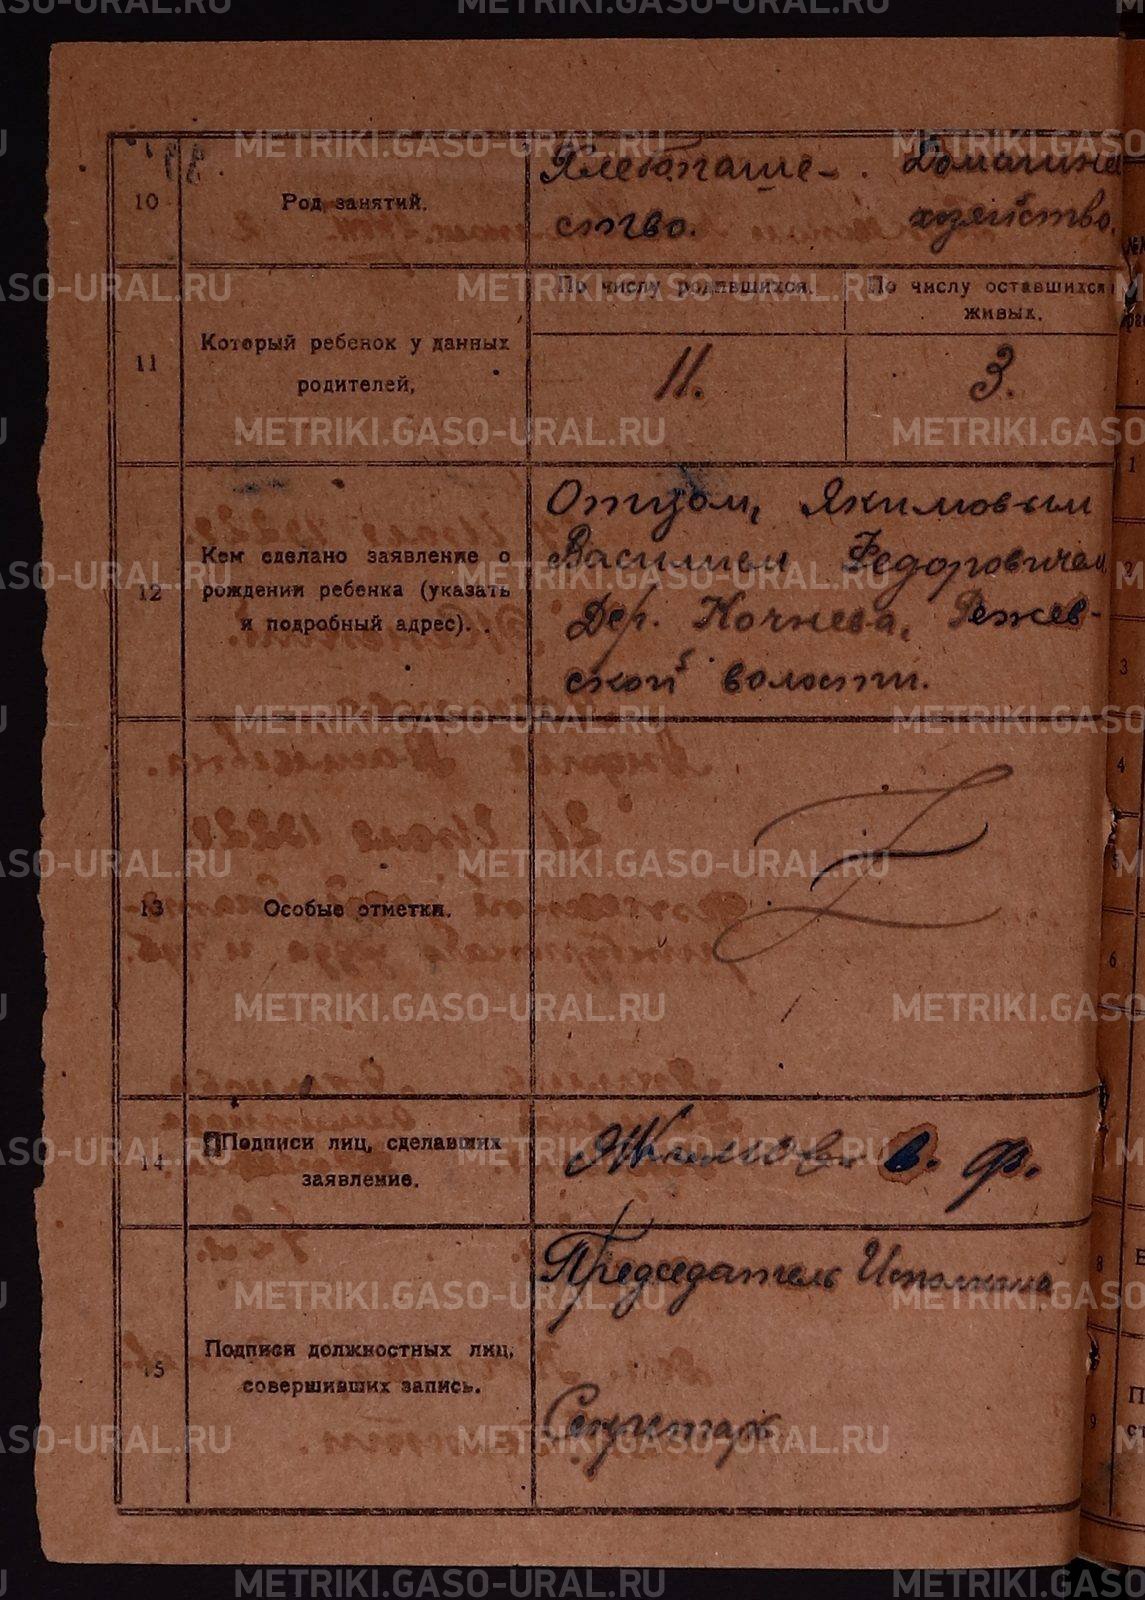 10
Род занятий.
Хлебопаше-
ство.
Домашнее
хозяйство.
11
Который ребенок у данных
родителей,
По числу родившихся.
По числу оставшихся
живых.
11.
3.
12
Кем сделано заявление о
рождении ребенка (указать
и подробный адрес).
Отцом, Якимовым
Василием Федоровичем
Дер. Кочнева, Режев-
ской волости.
13
Особые отметки.
14
Подписи лиц, сделавших
заявление.
Якимов В. Ф.
15
Подписи должностных лиц,
совершивших запись.
Председатель Исполкома
Секретарь
METRIKI.GASO-URAL.RU